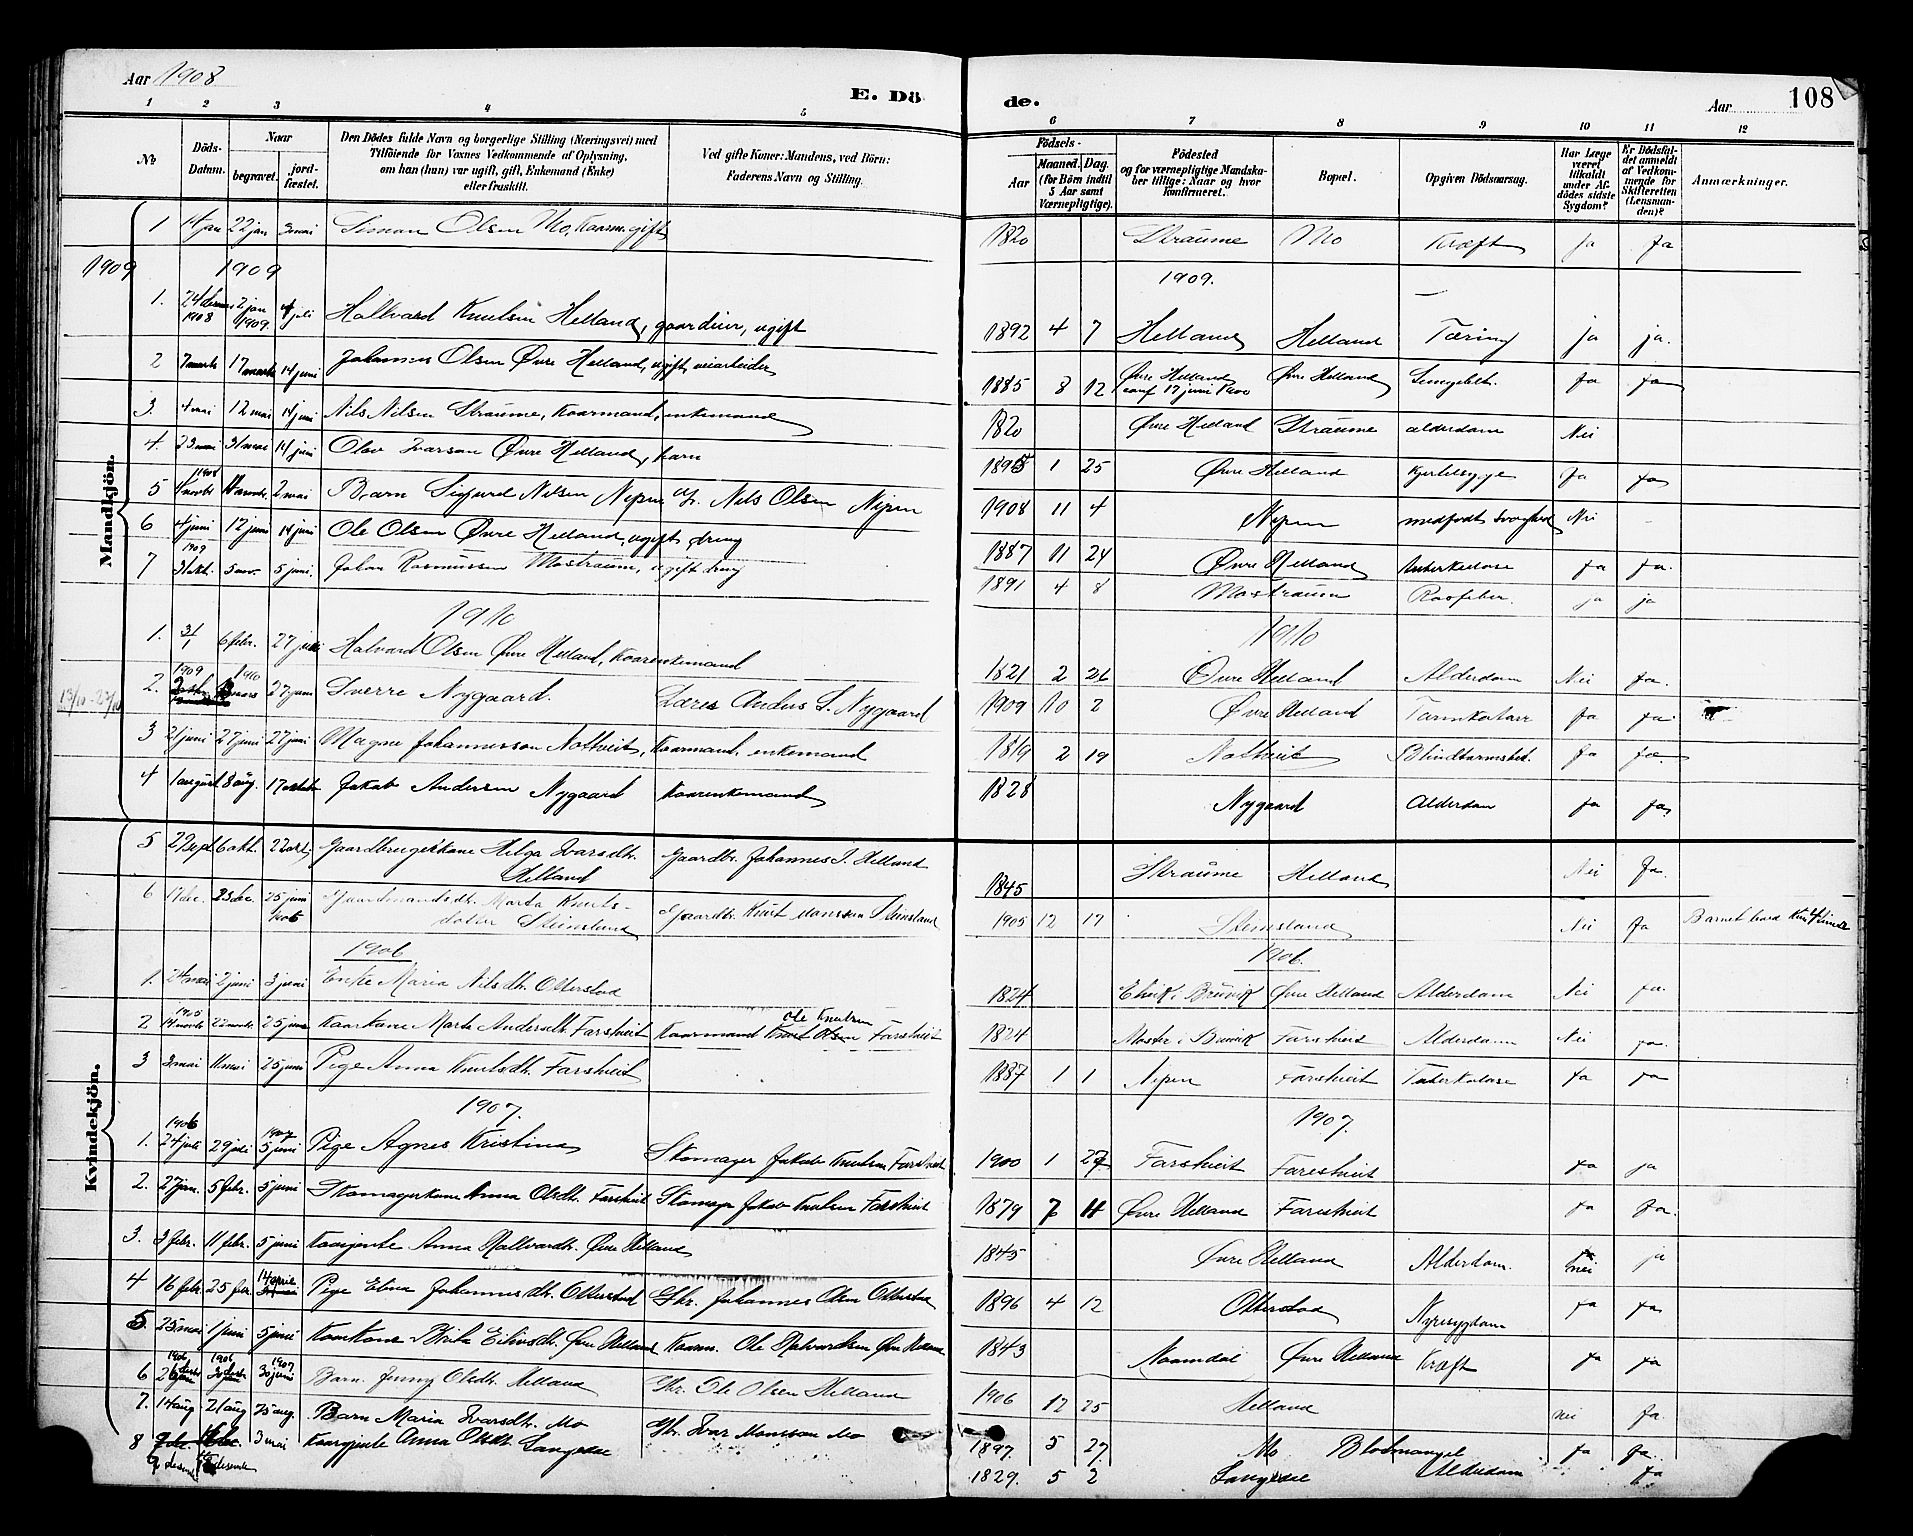 Aar 1908
E. Dö
de.
Aar
108
1 2 3 4 5 6 7 8 9 10 11 12
No
Döds-Datum.
Naar
begravet.
jord-fæstet.
Den Dödes fulde Navn og borgerlige Stilling (Næringsvei) med
Tilföiende for Voxnes Vedkommende af Oplysning,
om han (hun) var ugift, gift, Enkemand (Enke)
eller fraskilt.
Ved gifte Koner: Mandens, ved Börn:
Faderens Navn og Stilling.
Födsels-
Aar
Maaned. Dag.
(for Börn indtil
5 Aar samt
Værnepligtige).
Födested
og for værnepligtige Mandska-
ber tillige: Naar og hvor
konfirmeret.
Bopæl.
Opgiven Dödsaarsag.
Har Læge
været
tilkaldt
under Af-
dödes sidste
Sygdom?
Er Dödsfal-
det anmeldt
af Vedkom-
mende for
Skifteretten
(Lensman-
den)?
Anmærkninger.
Mandkjön.
1 14 jan 22 jan 3 mai Simon Olsen Mo, Kaarm. gift 1820 Straume Mo Kræft ja ja
1909 1909 1909.
1. 24 1908 2 jan 1909. 4 juli Hallvard Knutsen Helland, ugift 1892 4 7 Helland Helland Tæring ja ja.
2 7 marts 17 marts 14 juni Johannes Olsen Øvre Helland, ugift, veiarbeider 1885 8 12 Øvre Helland conf 17 juni 1900 Øvre Helland ja ja
3. 4 mai 12 mai 14 juni Nils Nilsen Straume, Kaarmand, enkemand 1820 Øvre Helland Straume alderdom Nei
4. 23 mai 31 mai 14 juni Olav Ivarson Øvre Helland, barn 1895 1 25 Øvre Helland ja ja
5 1908 2 mai Barn Sigurd Nilsen Nipen Nils Olsen Nipen 1908 11 4 Nipen medfødt Svaghed Nei -
6 4 juni 12 juni 14 juni Ole Olsen Øvre Helland, ugift dreng 1887 11 24 Øvre Helland ja ja.
7 1909 31 okt. 5 nov. 5 juni. Johan Rasmussen Mostraum, ugift dreng 1891 4 8 Mostraum ja ja
1910 1910
1. 3/1 6 febr. 27 juni Halvard Olsen Øvre Helland, Kaarenkemand 1821 2 26 Øvre Helland Alderdom Nei ja.
2. 1909 1910 mars 27 juni Sverre Nygaard. Lærer Anders L. Nygaard 1909 10 2 Øvre Helland Tarmkatarr ja ja
3 21 juni 27 juni 27 juni Magne Johannesson Notveit, Kaarmand, enkemand 1819 2 19 Notveit ja ja.
4 1 august 8 aug. 17 Jakob Andersen Nygaard Kaarenkemand 1828 Nygaard Alderdom ja ja
Kvindekjön.
5 29 Sept. 6 okt. 22 okt. Gaardbrugerkone Helga Ivarsdtr. Helland Gaardbr. Johannes I. Helland 1845 Straume Helland Nei ja.
6 17 dec. 23 dec. 25 juni Gaardmandsdtr. Marta Knuts-
datter Steinsland Gaardbr. Knut Steinsland 1905 12 17 Steinsland Nei ja Barnet
1906 1906.
1. 24 mai 2 juni 3 juni Enke Maria Nilsdtr. Otterstad 1824 Bruvik Øvre Helland Alderdom Nei ja.
2 1905 14 novbr 22 novbr 25 juni Kaarkone Marta Andersdtr. Farstveit Kaarmand Ole Knutsen Farstveit 1824 Moster i Bruvik Farstveit Alderdom Nei ja.
3 3 mai 11 mai 25 juni Pige Anna Knutsdtr. Farstveit 1887 1 1 Nipen Farstveit Tuberkulose ja ja
1907. 1907.
1. 1906 24 juli 29 juli 1907 5 juni Pige Agnes Kristina Skomager Jakob Knutsen Farstveit 1900 1 27 Farstveit Farestveit ja ja
2. 27 jan. 5 febr. 5 juni Skomagerkone Anna Olsdtr. Farstveit Skomager Jakob Knutsen Farstveit 1879 7 11 Øvre Helland Farestveit ja ja.
3. 3 febr. 11 febr. 5 juni Kaarjente Anna Hallvardtr. Øvre Helland 1845 Øvre Helland Alderdom. nei ja
4 16 febr. 25 febr. 14 april Pige Johannesdtr. Otterstad Gbr. Johannes Olsen Otterstad 1896 4 12 Otterstad Nyresygdom ja ja
5. 25 mai 1 juni 5 juni Kaarkone Brita Øvre Helland Kaarm. Ole Halvardsen Øvre Helland 1843 Naamdal Øvre Helland Kræft ja ja
6 1906 1906 1907 30 juni Barn Jenny Olsdtr. Helland Gbr. Ole Olsen Helland 1906 12 25 Helland nei ja.
7. 14 aug 21 aug 25 aug. Barn Maria Ivarsdtr. Mo Gbr. Ivar Monsson Mo 1897. 5 27. Mo Blodmangel ja ja.
8 3 mai Kaarjente Anna Olsdtr. 1829. 5 2 Alderdom ja